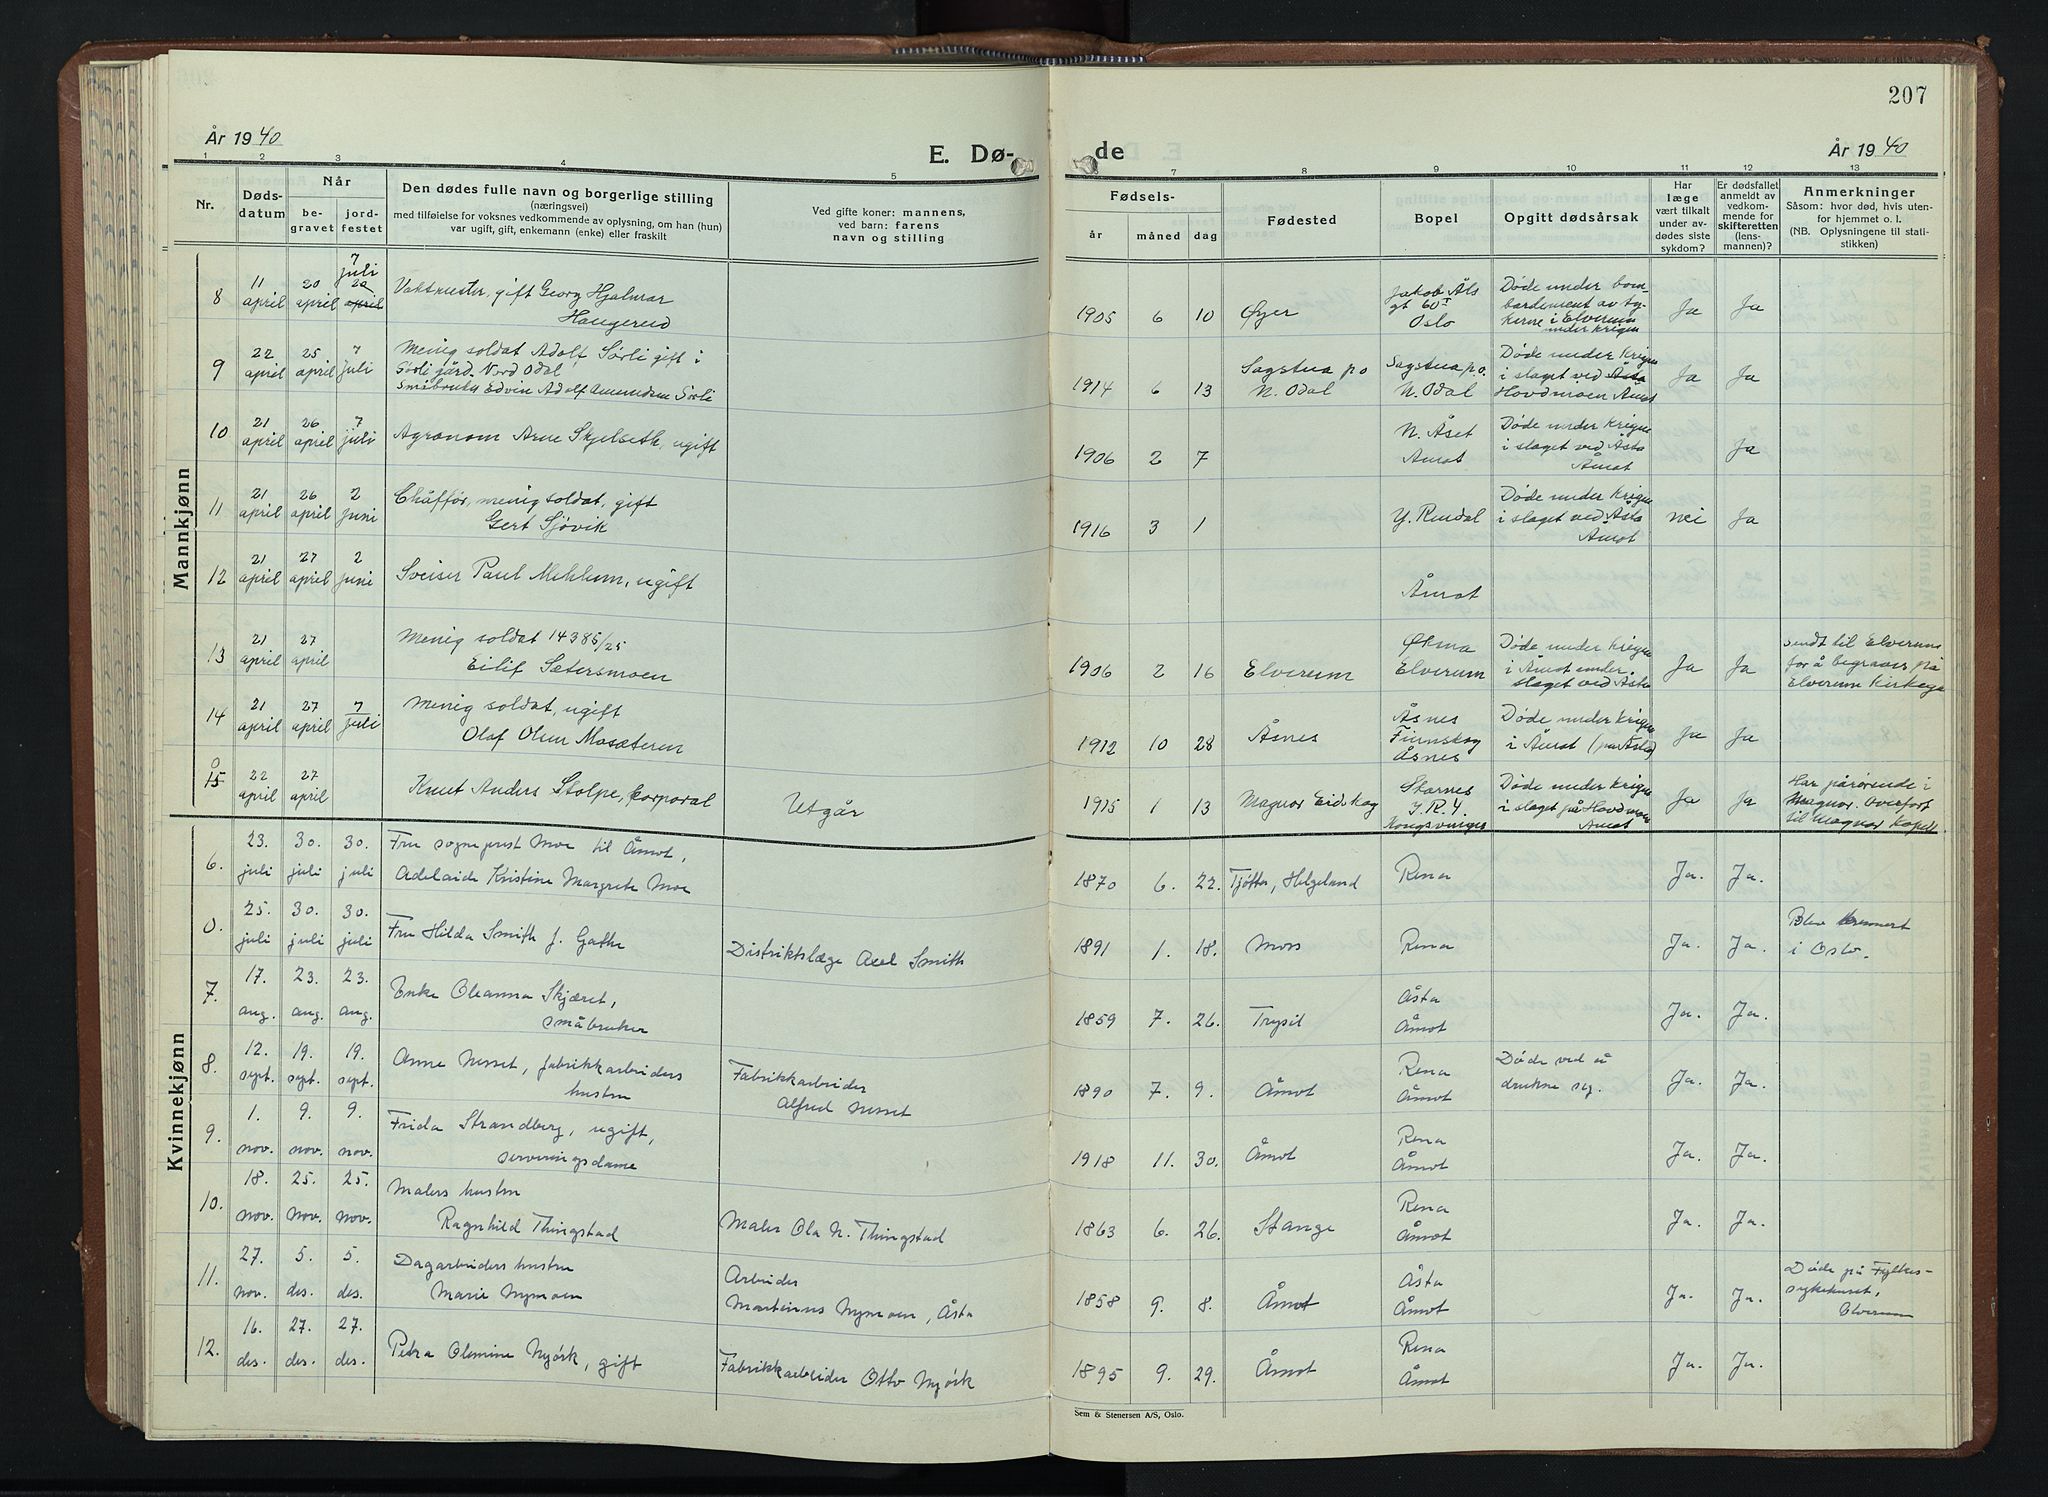 207
År 1940
E. Dø-
de
År 1940
1 2 3 4 5 7 8 9 10 11 12 13
Nr.
Døds-
datum
Når
be-
gravet
jord-
festet
Den dødes fulle navn og borgerlige stilling
(næringsvei)
med tilføielse for voksnes vedkommende av oplysning, om han (hun)
var ugift, gift, enkemann (enke) eller fraskilt
Ved gifte koner: mannens,
ved barn: farens
navn og stilling
Fødsels-
år måned dag
Fødested
Bopel
Opgitt dødsårsak
Har
læge
vært tilkalt
under av-
dødes siste
sykdom?
Er dødsfallet
anmeldt av
vedkom-
mende for
skifteretten
(lens-
mannen)?
Anmerkninger
Såsom: hvor død, hvis uten-
for hjemmet o. l.
(NB. Oplysningene til stati-
stikken)
Mannkjønn
8
11 april
20 april
7 juli
20 april
Vaktmester, gift Georg Hjalmar
Haugerud
1905 6 10
Øyer
Jakob Åls
gt 60
Oslo
Døde under bom-
bardement av ty-
kerne i Elverum
under krigen
Ja
Ja
9
22 april
25 april
7 juli
Menig soldat Adolf Sørli gift i
Sørli gård. Nord Odal
Småbruker Edvin Adolf Amundsen Sørli
1914 6 13
Sagstua p.o
N. Odal
Sagstua p.o.
N. Odal
Døde under krigen
i slaget ved Åsta
Hovdmoen Åmot
Ja
Ja
10
21 april
26 april
7 juli
Agronom Arne Skjelseth, ugift
1906 2 7
N. Åset
Åmot
Døde under krigen
i slaget ved Åsta
Åmot
Ja
11
21 april
26 april
2 juni
Chåffør, menig soldat, gift
Gert Sjøvik
1916 3 1
Y. Rendal
Døde under krigen
i slaget ved Åsta
Åmot
nei
Ja
12
21 april
27 april
2 juni
Sveiser Paul Mehlum, ugift
Åmot
13
21 april
27 april
Menig soldat 14385/25
Eilif Sætersmoen
1906 2 16
Elverum
Øksna
Elverum
Døde under krigen
i Åmot under
slaget ved Åsta
Ja
Ja
sendt til Elverum
for å begraves på
Elverum Kirkegå
14
21 april
27 april
7 juli
Menig soldat, ugift
Olaf Olsen Mosæteren
1912 10 28
Åsnes
Åsnes
Finnskog
Åsnes
Døde under krigen
i Åmot (på Åsta)
Ja
Ja
0
15
22 april
27 april
Knut Anders Stolpe, korporal
Utgår
1915 1 13
Magnor Eidskog
Starnes
J.R. 4
Kongsvinger
Døde under krigen
i slaget på Hovdmoen
Åmot
Ja
Ja
Har pårørende i
Magnor. Overført
til Magnor kapell.
Kvinnekjønn
6.
23. juli
30. juli
30. juli
Fru sogneprest Moe til Åmot,
Adelaide Kristine Margrete Moe
1870 6. 22.
Tjøtta, Helgeland
Rena
Ja.
Ja.
0.
25. juli
30. juli
30. juli
Fru Hilda Smith f. Gathe
Distriktslæge Axel Smith
1891 1. 18.
Moss
Rena
Ja.
Ja.
Blev kremert
i Oslo.
7.
17. aug.
23. aug.
23. aug.
Enke Oleanna Skjæret,
småbruker
1859 7. 26.
Trysil
Åsta
Åmot
Ja.
Ja.
8.
12. sept.
19. sept.
19. sept.
Anne Nesset, fabrikkarbeiders
hustru
Fabrikkarbeider
Alfred Nesset
1890 7. 9.
Åmot
Rena
Åmot
Døde ved å
drukne seg.
Ja.
Ja.
9.
1. nov.
9. nov.
9. nov.
Frida Strandberg, ugift,
serveringsdame
1918 11. 30.
Åmot
Rena
Åmot
Ja.
Ja.
10.
18. nov.
25. nov.
25. nov.
Malers hustru
Ragnhild Thingstad
Maler Ola N. Thingstad
1863 6. 26.
Stange
Rena
Åmot
Ja.
Ja.
11.
27. nov.
5. des.
5. des.
Dagarbeiders hustru
Marie Nymoen
Arbeider
Martinus Nymoen, Åsta
1858 9. 8.
Åmot
Åsta
Åmot
Ja.
Ja.
Døde på Fylkes-
sykehuset,
Elverum
12.
16. des.
27. des.
27. des.
Petra Olemine Nyørk, gift
Fabrikkarbeider Otto Nyørk
1895 9. 29.
Åmot
Rena
Åmot
Ja.
Ja.
Sem & Stenersen A/S, Oslo.